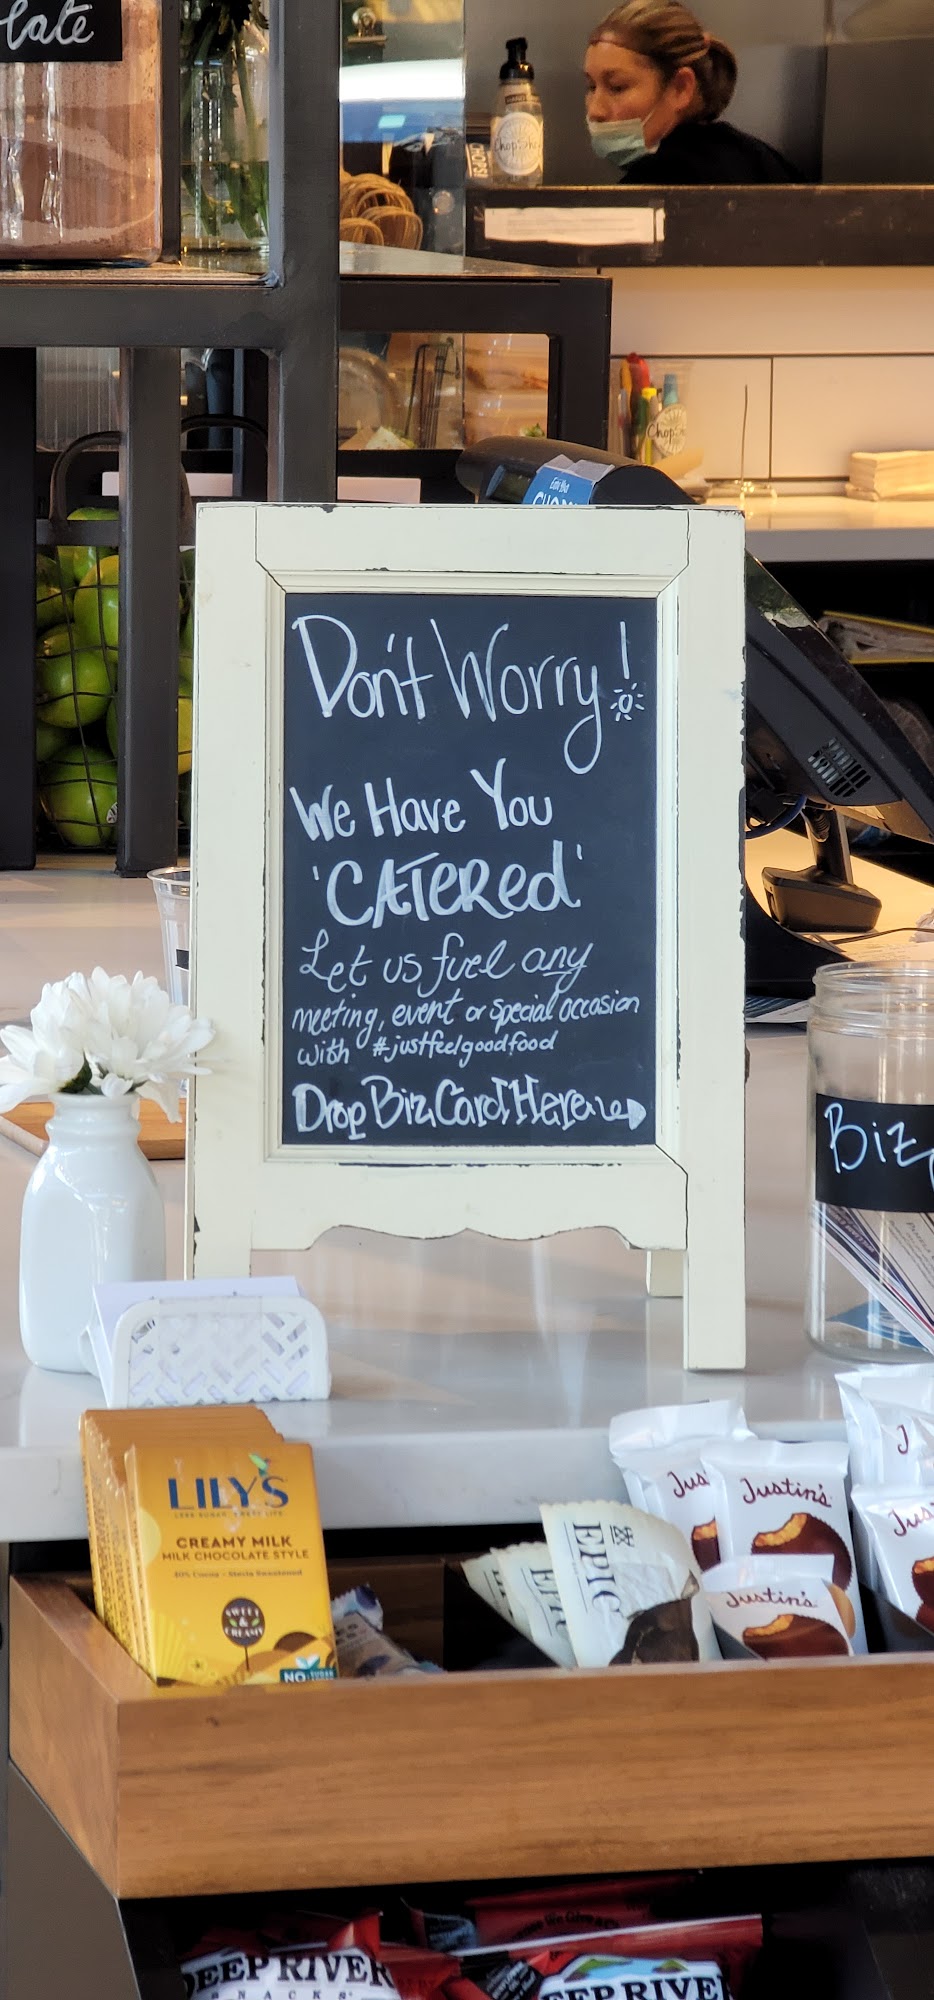 late
Chop
Eat the
Don't Worry!
We Have You
'CATERed'
Let us fuel any
meeting, event or special occasion
with #justfeelgoodfood
Drop Biz Card Here
Biz
LILY'S
CREAMY MILK
MILK CHOCOLATE STYLE
40% Cocoa - Stevia Sweetened
SWEET
CREAMY
NO
EPIC
EPIC
Jus
Justin's
Justin's
J
Jus
DEEP RIVER
SNACKS
EEP RIVER